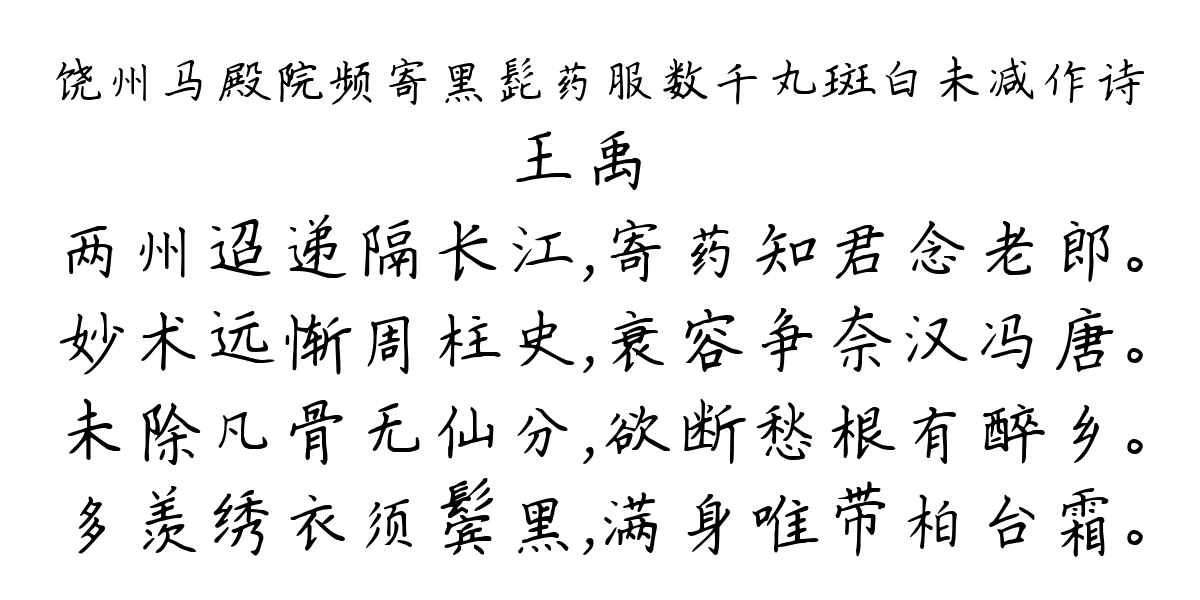 饶州马殿院频寄黑髭药服数千丸斑白未减作诗
王禹
两州迢递隔长江,寄药知君念老郎。
妙术远惭周柱史,衰容争奈汉冯唐。
未除凡骨无仙分,欲断愁根有醉乡。
多羡绣衣须鬓黑,满身唯带柏台霜。